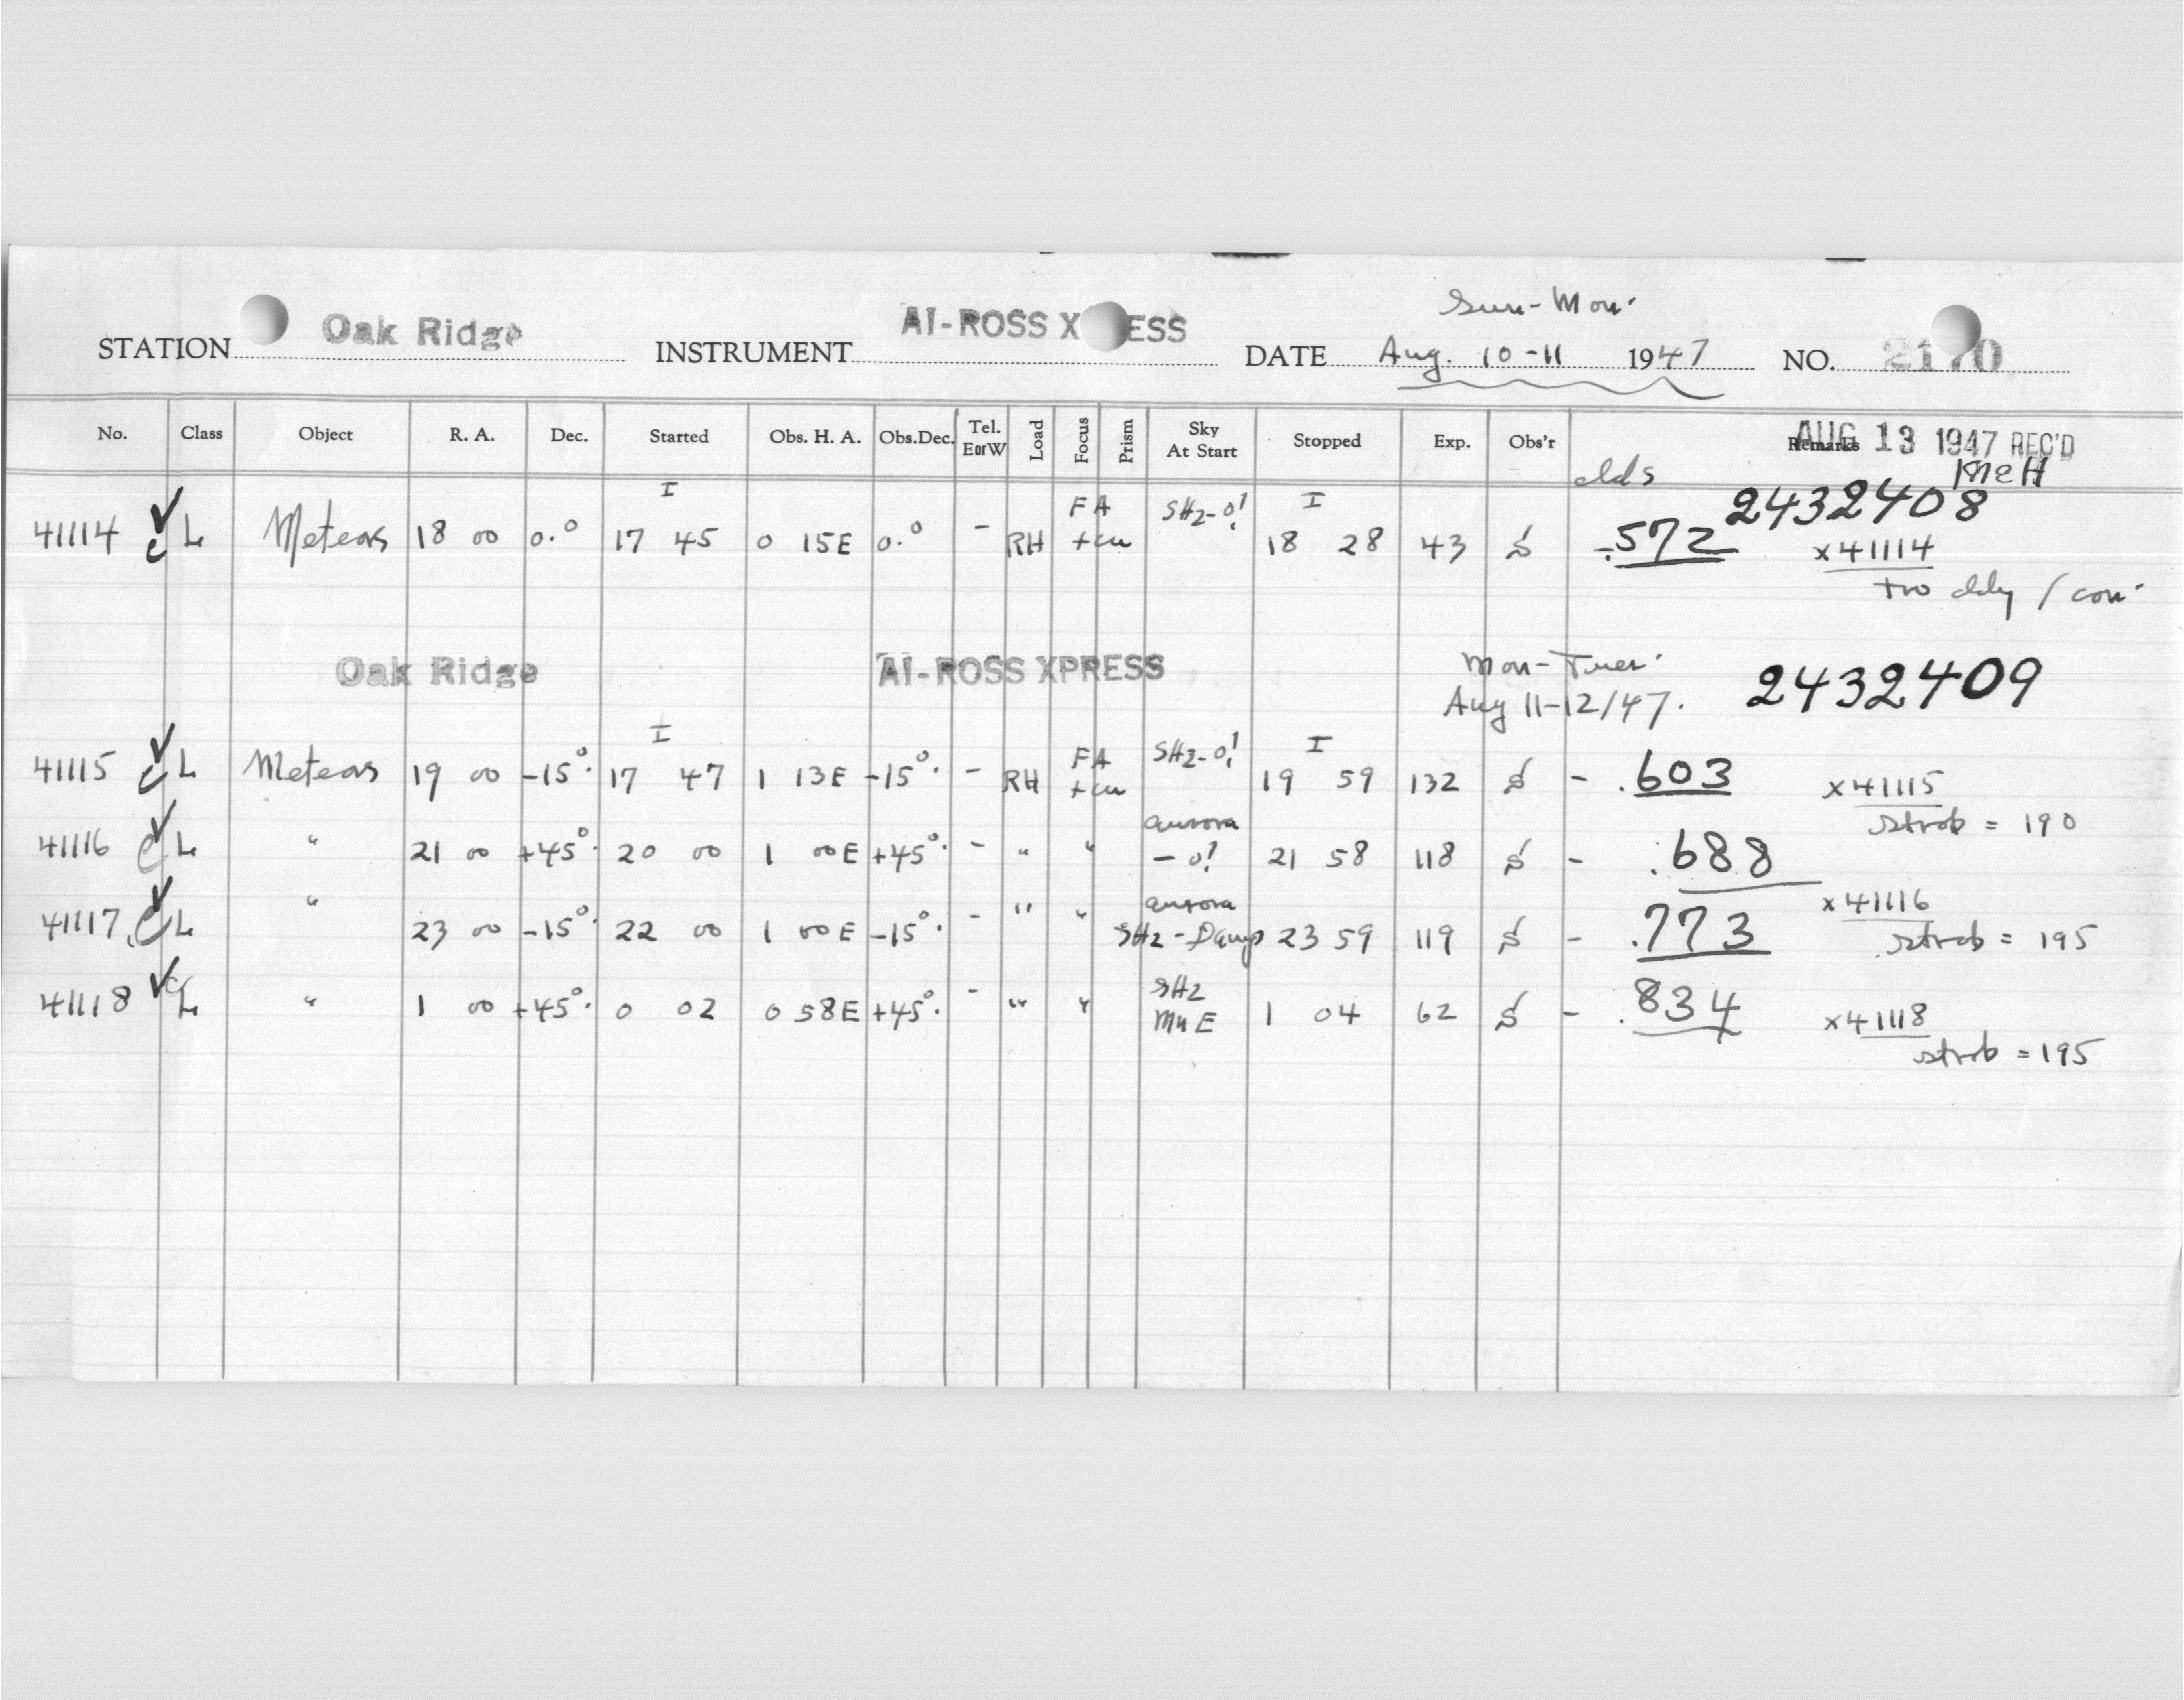 Sun-Mon.
STATION Oak Ridge INSTRUMENT AI-ROSS X ESS DATE Aug. 10-11 1947 NO. 2170
No. Class Object R. A. Dec. Started Obs. H. A. Obs.Dec. Tel. EorW Load Focus Prism Sky At Start Stopped Exp. Obs'r Remarks AUG 13 1947 REC'D
clds
I FA SH2-0! I 2432408
41114 L Meteors 18 00 0.° 17 45 0 15E 0.° - RH +cu 18 28 43 S -.572 x41114
two ddy / con.
Oak Ridge AI-ROSS XPRESS Mon-Tues. 2432409
Aug 11-12/47.
I FA SH2-0! I
41115 L Meteors 19 00 -15°. 17 47 1 13E -15°. - RH +cu 19 59 132 S - .603 x41115
strob = 190
aurora
41116 L " 21 00 +45°. 20 00 1 00E +45°. - " " -0! 21 58 118 S - .688
aurora x41116
41117 L " 23 00 -15°. 22 00 1 00E -15°. - " " SH2-Damp 23 59 119 S - .773 strob = 195
SH2
41118 L " 1 00 +45°. 0 02 0 58E +45°. - " " Mn E 1 04 62 S - .834 x41118
strob = 195